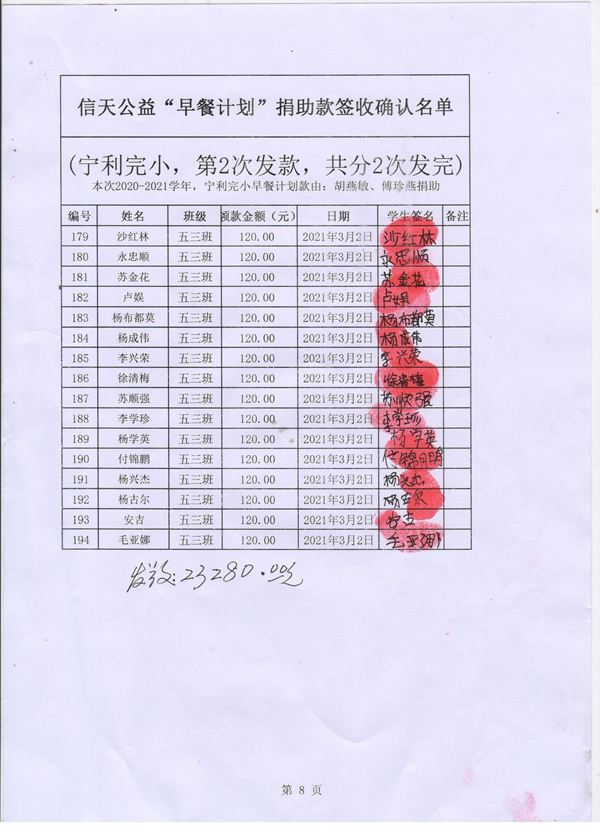 信天公益“早餐计划”捐助款签收确认名单
(宁利完小，第2次发款，共分2次发完)
本次2020-2021学年，宁利完小早餐计划款由：胡燕敏、傅珍燕捐助
编号 姓名 班级 领款金额（元） 日期 学生签名 备注
179 沙红林 五三班 120.00 2021年3月2日 沙红林
180 永忠顺 五三班 120.00 2021年3月2日 永忠顺
181 苏金花 五三班 120.00 2021年3月2日 苏金花
182 卢娱 五三班 120.00 2021年3月2日 卢娱
183 杨布都莫 五三班 120.00 2021年3月2日 杨布都莫
184 杨成伟 五三班 120.00 2021年3月2日 杨成伟
185 李兴荣 五三班 120.00 2021年3月2日 李兴荣
186 徐清梅 五三班 120.00 2021年3月2日 徐清梅
187 苏顺强 五三班 120.00 2021年3月2日 苏顺强
188 李学珍 五三班 120.00 2021年3月2日 李学珍
189 杨学英 五三班 120.00 2021年3月2日 杨学英
190 付锦鹏 五三班 120.00 2021年3月2日 付锦鹏
191 杨兴杰 五三班 120.00 2021年3月2日 杨兴杰
192 杨古尔 五三班 120.00 2021年3月2日 杨古尔
193 安吉 五三班 120.00 2021年3月2日 安吉
194 毛亚娜 五三班 120.00 2021年3月2日 毛亚娜
发放:23280.00元
第 8 页